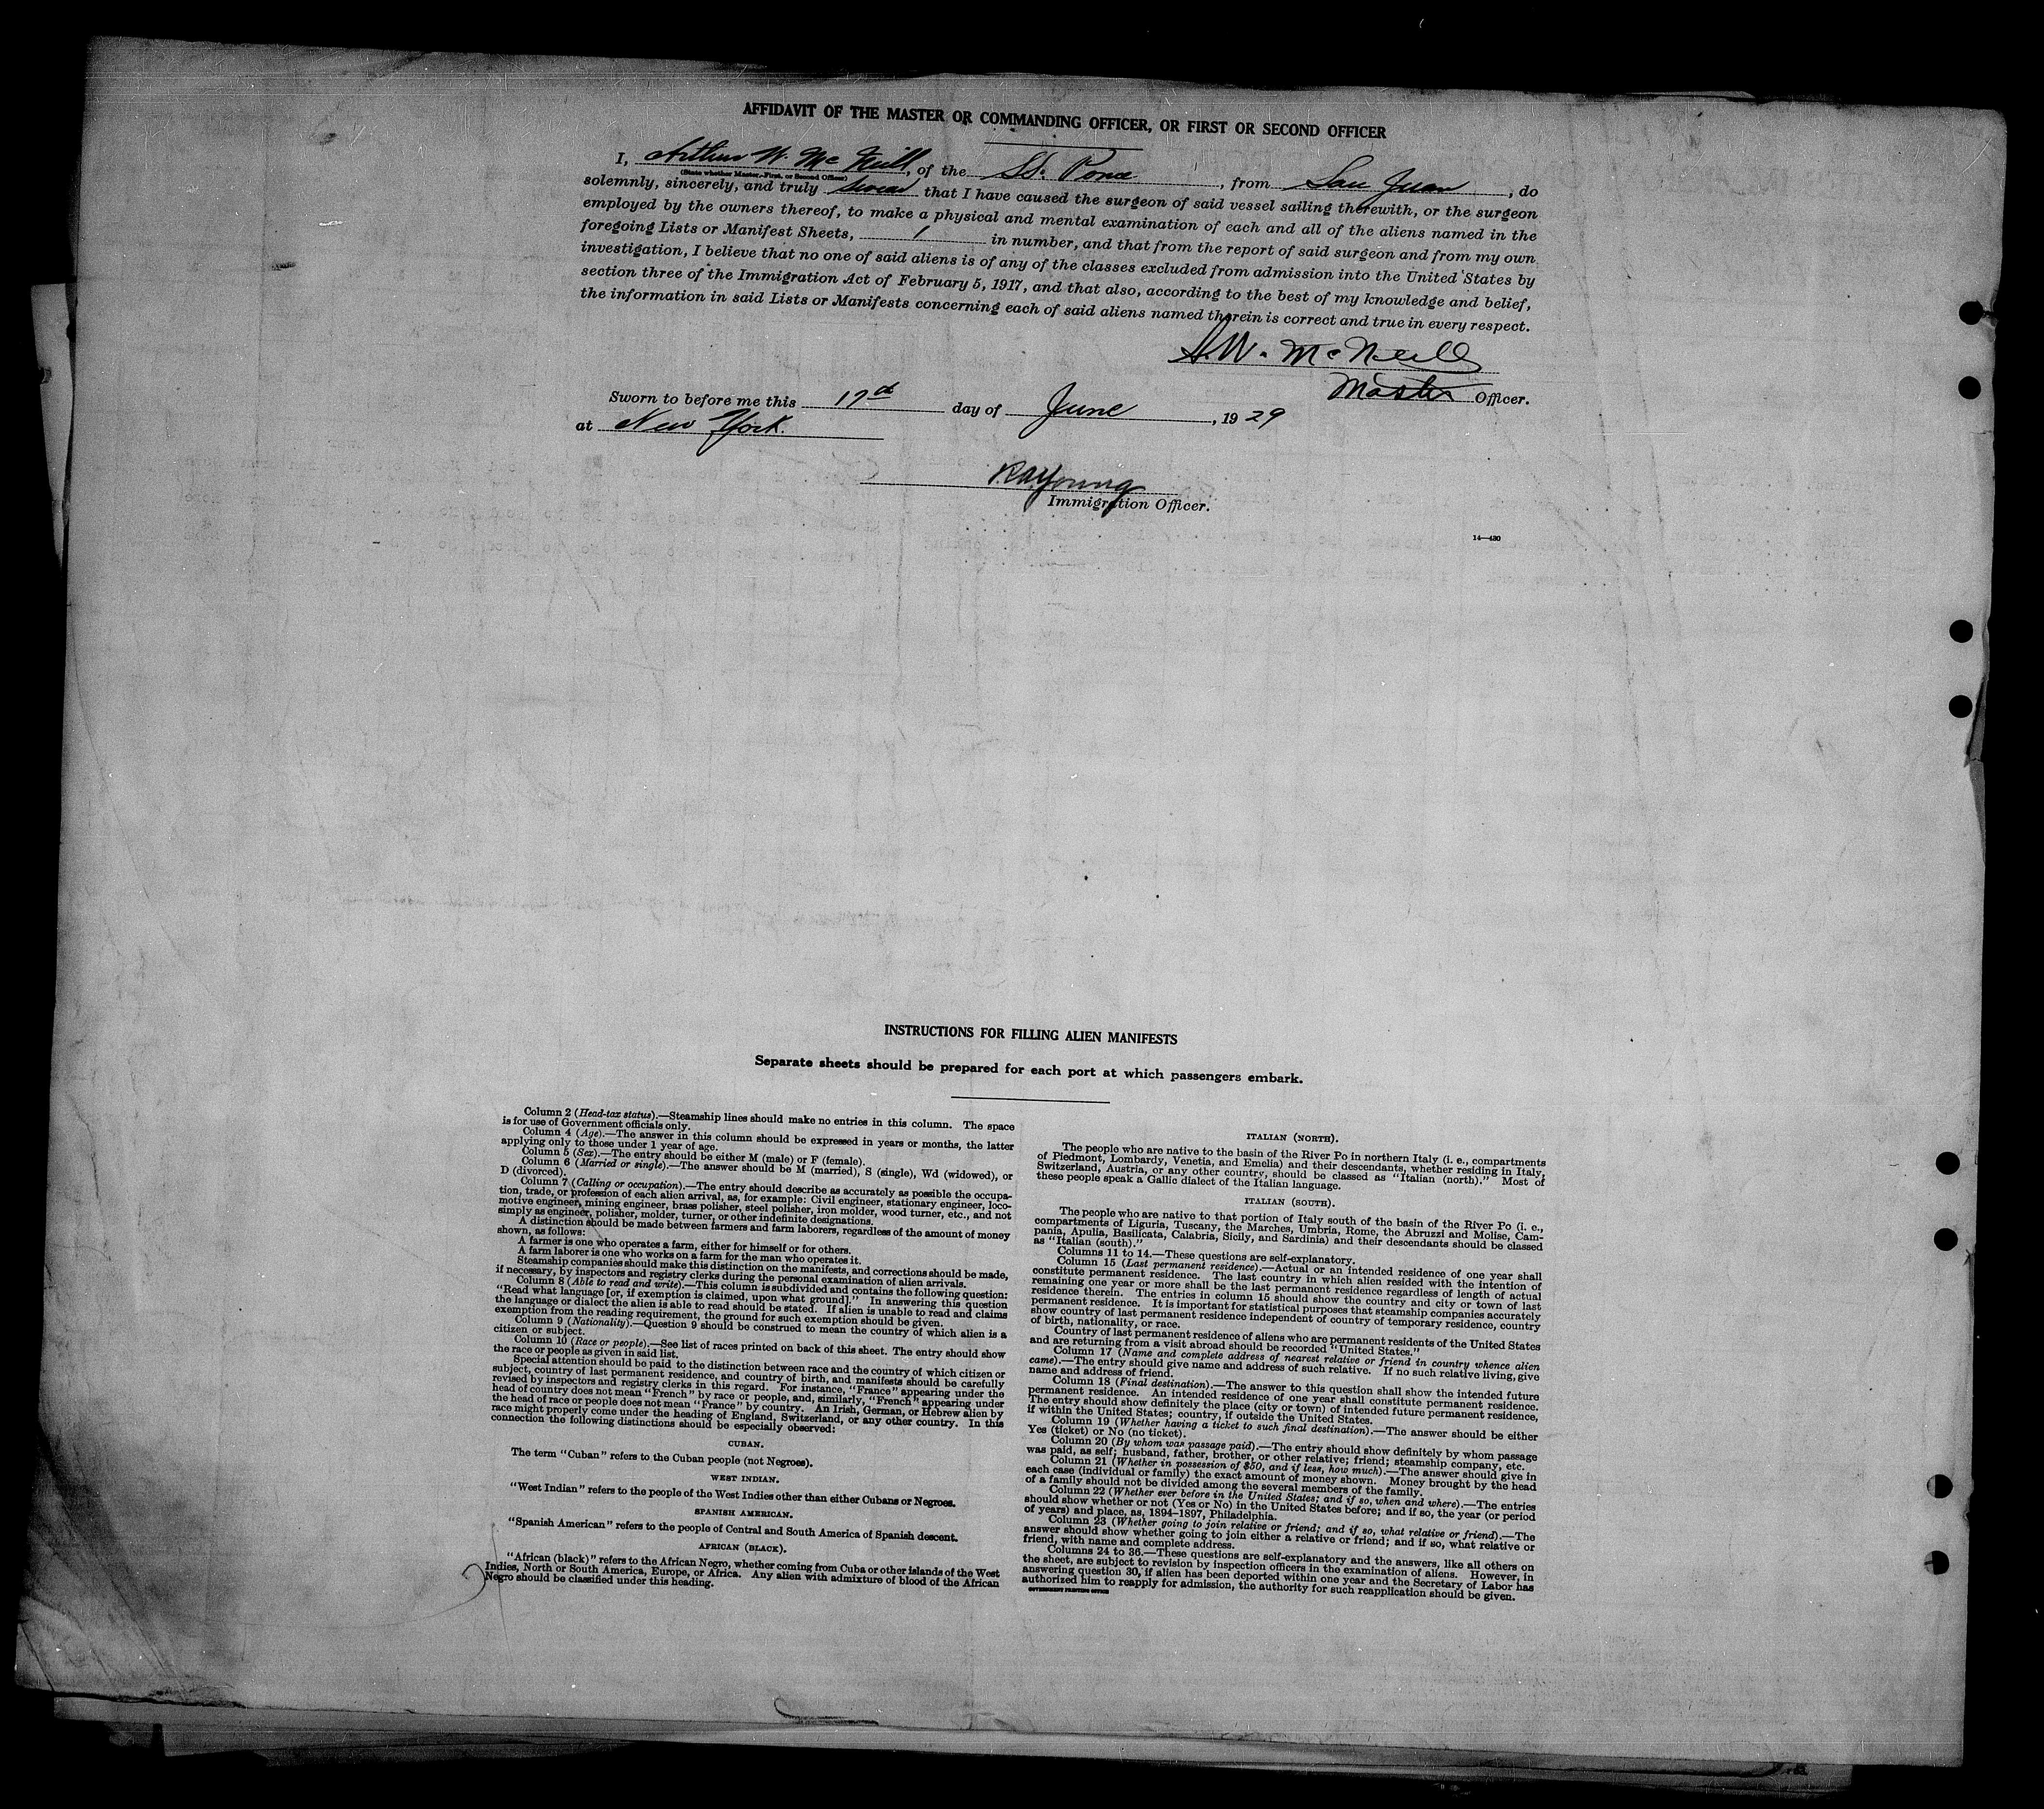 AFFIDAVIT OF THE MASTER OR COMMANDING OFFICER, OR FIRST OR SECOND OFFICER
I, Arthur W. McNeill, of the SS. Ponce, from San Juan, do
(State whether Master, First, or Second Officer)
solemnly, sincerely, and truly swear that I have caused the surgeon of said vessel sailing therewith, or the surgeon
employed by the owners thereof, to make a physical and mental examination of each and all of the aliens named in the
foregoing Lists or Manifest Sheets, 1 in number, and that from the report of said surgeon and from my own
investigation, I believe that no one of said aliens is of any of the classes excluded from admission into the United States by
section three of the Immigration Act of February 5, 1917, and that also, according to the best of my knowledge and belief,
the information in said Lists or Manifests concerning each of said aliens named therein is correct and true in every respect.
A.W. McNeill
Master Officer.
Sworn to before me this 17th day of June, 1929
at New York.
R.A. Young
Immigration Officer.
14—430
INSTRUCTIONS FOR FILLING ALIEN MANIFESTS
Separate sheets should be prepared for each port at which passengers embark.
Column 2 (Head-tax status).—Steamship lines should make no entries in this column. The space
is for use of Government officials only.
Column 4 (Age).—The answer in this column should be expressed in years or months, the latter
applying only to those under 1 year of age.
Column 5 (Sex).—The entry should be either M (male) or F (female).
Column 6 (Married or single).—The answer should be M (married), S (single), Wd (widowed), or
D (divorced).
Column 7 (Calling or occupation).—The entry should describe as accurately as possible the occupa-
tion, trade, or profession of each alien arrival, as, for example: Civil engineer, stationary engineer, loco-
motive engineer, mining engineer, brass polisher, steel polisher, iron molder, wood turner, etc., and not
simply as engineer, polisher, molder, turner, or other indefinite designations.
A distinction should be made between farmers and farm laborers, regardless of the amount of money
shown, as follows:
A farmer is one who operates a farm, either for himself or for others.
A farm laborer is one who works on a farm for the man who operates it.
Steamship companies should make this distinction on the manifests, and corrections should be made,
if necessary, by inspectors and registry clerks during the personal examination of alien arrivals.
Column 8 (Able to read and write).—This column is subdivided and contains the following question:
"Read what language [or, if exemption is claimed, upon what ground]." In answering this question
the language or dialect the alien is able to read should be stated. If alien is unable to read and claims
exemption from the reading requirement, the ground for such exemption should be given.
Column 9 (Nationality).—Question 9 should be construed to mean the country of which alien is a
citizen or subject.
Column 10 (Race or people).—See list of races printed on back of this sheet. The entry should show
the race or people as given in said list.
Special attention should be paid to the distinction between race and the country of which citizen or
subject, country of last permanent residence, and country of birth, and manifests should be carefully
revised by inspectors and registry clerks in this regard. For instance, "France" appearing under the
head of country does not mean "French" by race or people, and, similarly, "French" appearing under
the head of race or people does not mean "France" by country. An Irish, German, or Hebrew alien by
race might properly come under the heading of England, Switzerland, or any other country. In this
connection the following distinctions should be especially observed:
CUBAN.
The term "Cuban" refers to the Cuban people (not Negroes).
WEST INDIAN.
"West Indian" refers to the people of the West Indies other than either Cubans or Negroes.
SPANISH AMERICAN.
"Spanish American" refers to the people of Central and South America of Spanish descent.
AFRICAN (BLACK).
"African (black)" refers to the African Negro, whether coming from Cuba or other islands of the West
Indies, North or South America, Europe, or Africa. Any alien with admixture of blood of the African
Negro should be classified under this heading.
ITALIAN (NORTH).
The people who are native to the basin of the River Po in northern Italy (i. e., compartments
of Piedmont, Lombardy, Venetia, and Emelia) and their descendants, whether residing in Italy,
Switzerland, Austria, or any other country, should be classed as "Italian (north)." Most of
these people speak a Gallic dialect of the Italian language.
ITALIAN (SOUTH).
The people who are native to that portion of Italy south of the basin of the River Po (i. e.,
compartments of Liguria, Tuscany, the Marches, Umbria, Rome, the Abruzzi and Molise, Cam-
pania, Apulia, Basilicata, Calabria, Sicily, and Sardinia) and their descendants should be classed
as "Italian (south)."
Columns 11 to 14.—These questions are self-explanatory.
Column 15 (Last permanent residence).—Actual or an intended residence of one year shall
constitute permanent residence. The last country in which alien resided with the intention of
remaining one year or more shall be the last permanent residence regardless of length of actual
residence therein. The entries in column 15 should show the country and city or town of last
permanent residence. It is important for statistical purposes that steamship companies accurately
show country of last permanent residence independent of country of temporary residence, country
of birth, nationality, or race.
Country of last permanent residence of aliens who are permanent residents of the United States
and are returning from a visit abroad should be recorded "United States."
Column 17 (Name and complete address of nearest relative or friend in country whence alien
came).—The entry should give name and address of such relative. If no such relative living, give
name and address of friend.
Column 18 (Final destination).—The answer to this question shall show the intended future
permanent residence. An intended residence of one year shall constitute permanent residence.
The entry should show definitely the place (city or town) of intended future permanent residence,
if within the United States; country, if outside the United States.
Column 19 (Whether having a ticket to such final destination).—The answer should be either
Yes (ticket) or No (no ticket).
Column 20 (By whom was passage paid).—The entry should show definitely by whom passage
was paid, as self; husband, father, brother, or other relative; friend; steamship company, etc.
Column 21 (Whether in possession of $50, and if less, how much).—The answer should give in
each case (individual or family) the exact amount of money shown. Money brought by the head
of a family should not be divided among the several members of the family.
Column 22 (Whether ever before in the United States; and if so, when and where).—The entries
should show whether or not (Yes or No) in the United States before; and if so, the year (or period
of years) and place, as, 1894–1897, Philadelphia.
Column 23 (Whether going to join relative or friend; and if so, what relative or friend).—The
answer should show whether going to join either a relative or friend; and if so, what relative or
friend, with name and complete address.
Columns 24 to 36.—These questions are self-explanatory and the answers, like all others on
the sheet, are subject to revision by inspection officers in the examination of aliens. However, in
answering question 30, if alien has been deported within one year and the Secretary of Labor has
authorized him to reapply for admission, the authority for such reapplication should be given.
GOVERNMENT PRINTING OFFICE